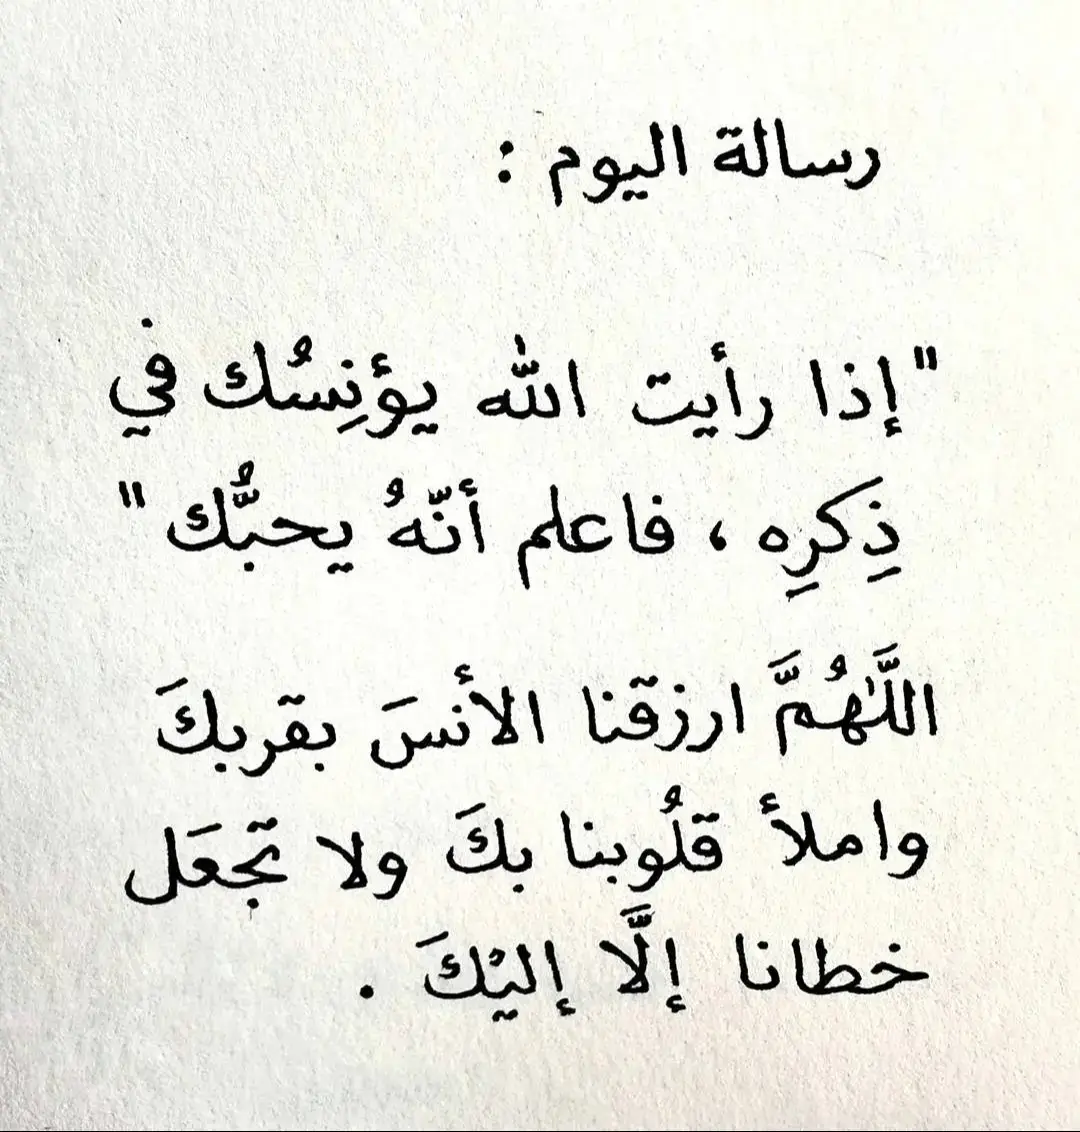 رسالة اليوم :
"إذا رأيت الله يؤنِسُك في
ذِكرِه ، فاعلم أنّهُ يحبُّك"
اللَّهُمَّ ارزقنا الأنسَ بقربكَ
واملأ قلُوبنا بكَ ولا تجعَل
خطانا إلَّا إليْكَ .